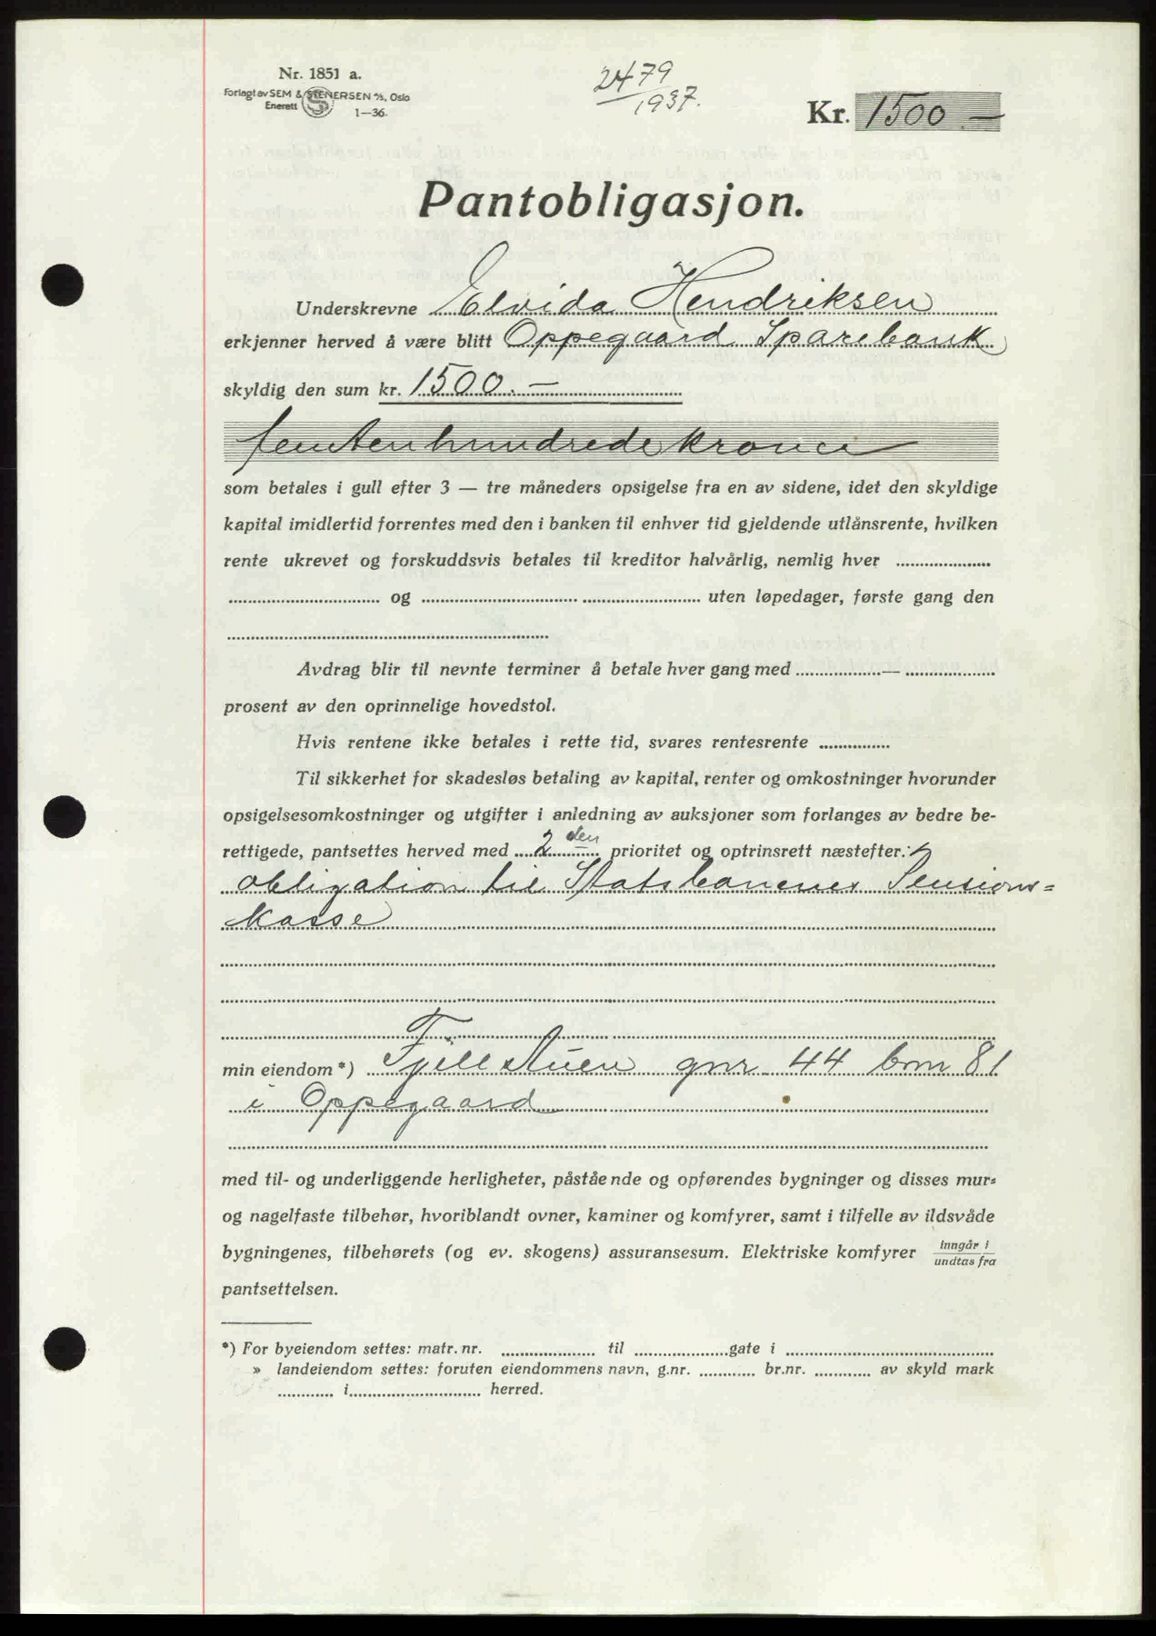 Nr. 1851 a.
Forlagt av SEM & STENERSEN A/S, Oslo
Enerett
1—36.
2479
1937.
Kr. 1500 —
Pantobligasjon.
Underskrevne Elvida Hendriksen
erkjenner herved å være blitt Oppegaard Sparebank
skyldig den sum kr. 1500. —
femtenhundrede kroner
som betales i gull efter 3 — tre måneders opsigelse fra en av sidene, idet den skyldige
kapital imidlertid forrentes med den i banken til enhver tid gjeldende utlånsrente, hvilken
rente ukrevet og forskuddsvis betales til kreditor halvårlig, nemlig hver ....................
................................ og ................................. ......................... uten løpedager, første gang den
....................................................................
Avdrag blir til nevnte terminer å betale hver gang med ..................—...................
prosent av den oprinnelige hovedstol.
Hvis rentene ikke betales i rette tid, svares rentesrente ...............
Til sikkerhet for skadesløs betaling av kapital, renter og omkostninger hvorunder
opsigelsesomkostninger og utgifter i anledning av auksjoner som forlanges av bedre be-
rettigede, pantsettes herved med 2 den prioritet og optrinsrett næstefter:
obligation til Statsbanenes Pensions=
kasse
min eiendom *) Fjellstuen gnr 44 bnr 81
i Oppegaard
med til- og underliggende herligheter, påstående og opførendes bygninger og disses mur-
og nagelfaste tilbehør, hvoriblandt ovner, kaminer og komfyrer, samt i tilfelle av ildsvåde
bygningenes, tilbehørets (og ev. skogens) assuransesum. Elektriske komfyrer inngår i
undtas fra
pantsettelsen.
*) For byeiendom settes: matr. nr. .................... til ....................gate i .............................................
» landeiendom settes: foruten eiendommens navn, g.nr. ............ br.nr. ............ av skyld mark
............ i............................ herred.